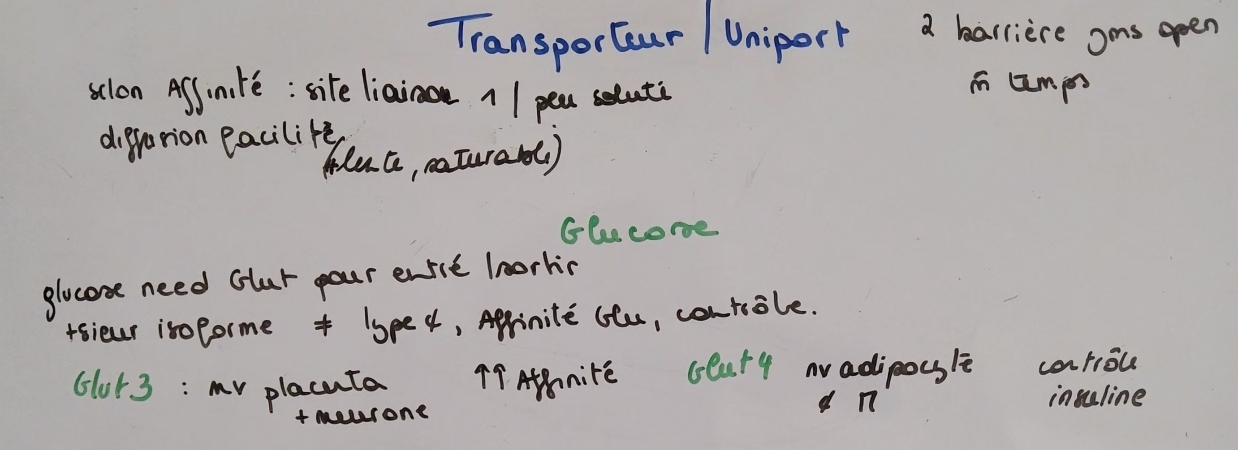 Transporteur / Uniport
2 barrière jms open
m̄ temps
selon Affinité : site liaison 1 / peu soluté
diffusion facilité
(+lente, saturable)
Glucose
glucose need Glut pour entré / sortir
+sieur isoforme ≠ type ¢, Affinité Glu, contrôle.
Glut 3 : nv placenta
+ neurone
↑↑ Affinité
Glut 4 nv adipocyte
¢ Π
contrôle
insuline